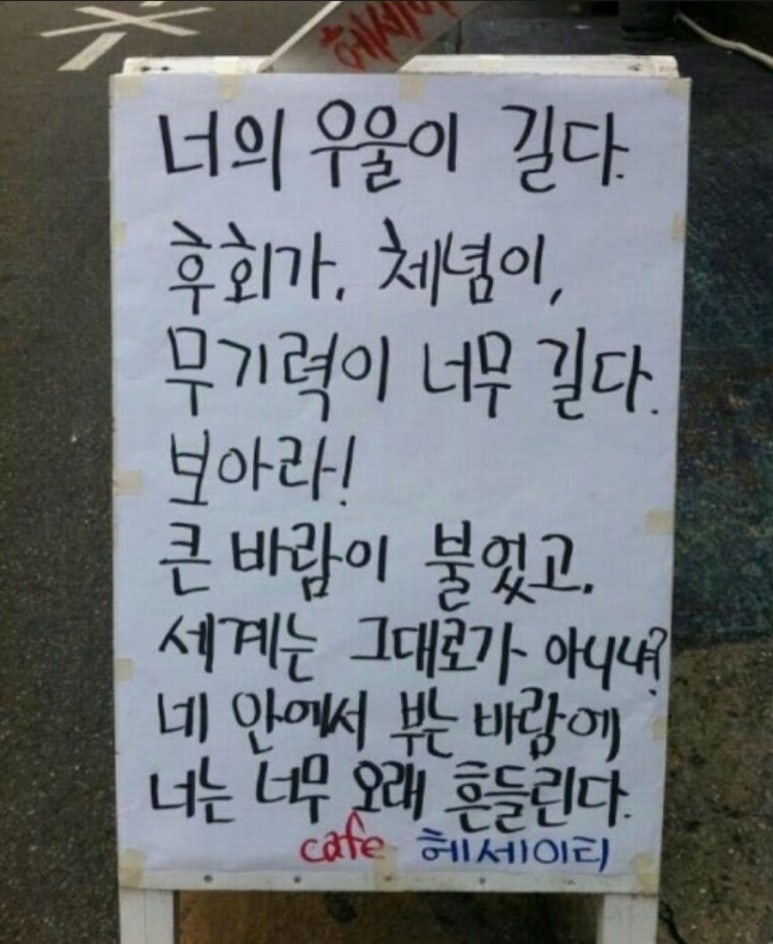 헤세이
너의 우울이 길다.
후회가, 체념이,
무기력이 너무 길다.
보아라!
큰 바람이 불었고,
세계는 그대로가 아니냐?
네 안에서 부는 바람에
너는 너무 오래 흔들린다.
cafe 헤세이티